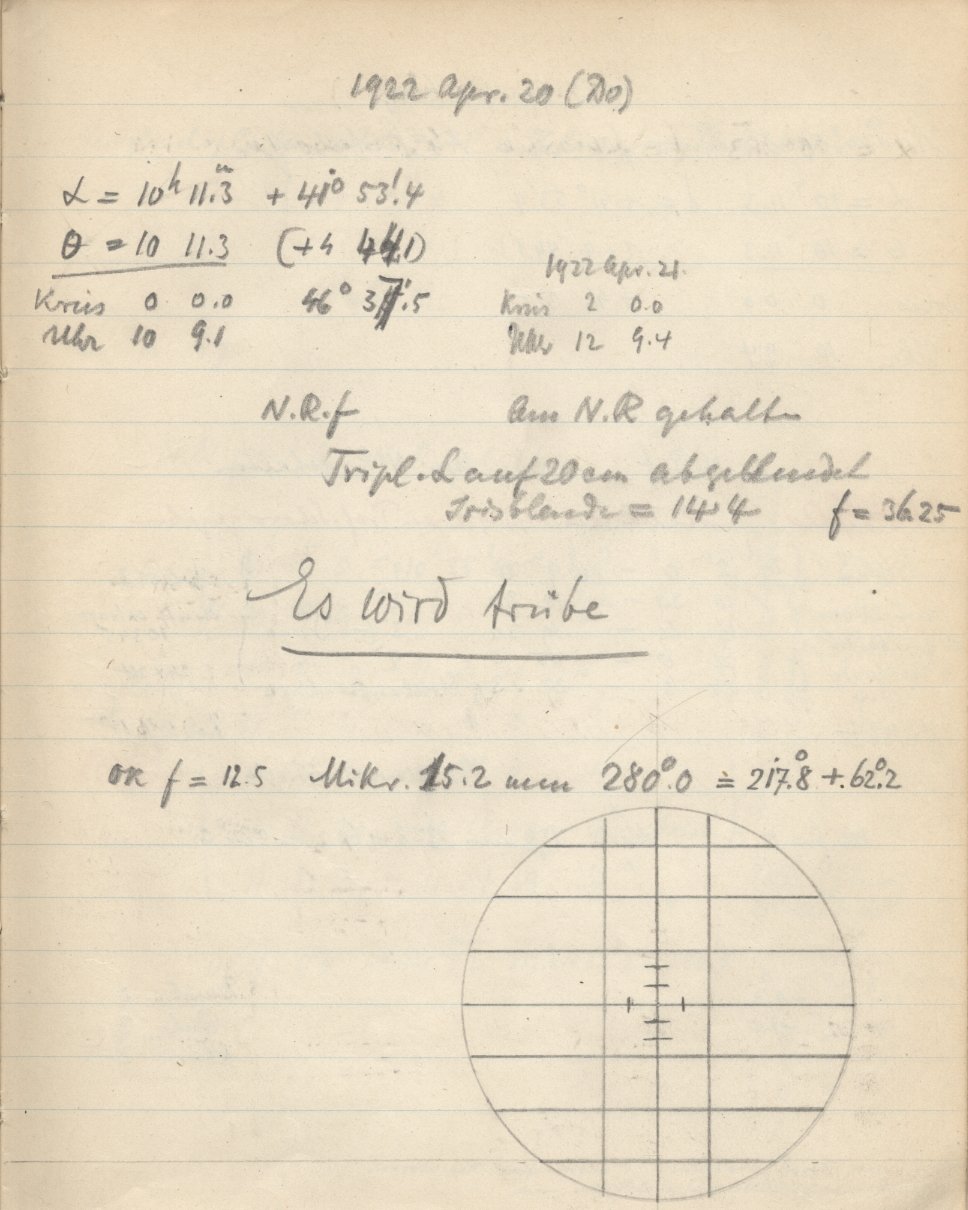 1922 Apr. 20 (Do)
α = 10ʰ 11.ᵐ3 + 41° 53.′4
θ = 10 11.3 (+4 44.1)
Kreis 0 0.0 46° 37.′5
Uhr 10 9.1
1922 Apr. 21.
Kreis 2 0.0
Uhr 12 9.4
N.R.f Am N.R gehalten
Tripl. L auf 20 cm abgeblendet
Irisblende = 14.4 f = 36.25
Es wird trübe
OK f = 12.5 Mikr. 15.2 mm 280°.0 = 217°.8 + 62°.2